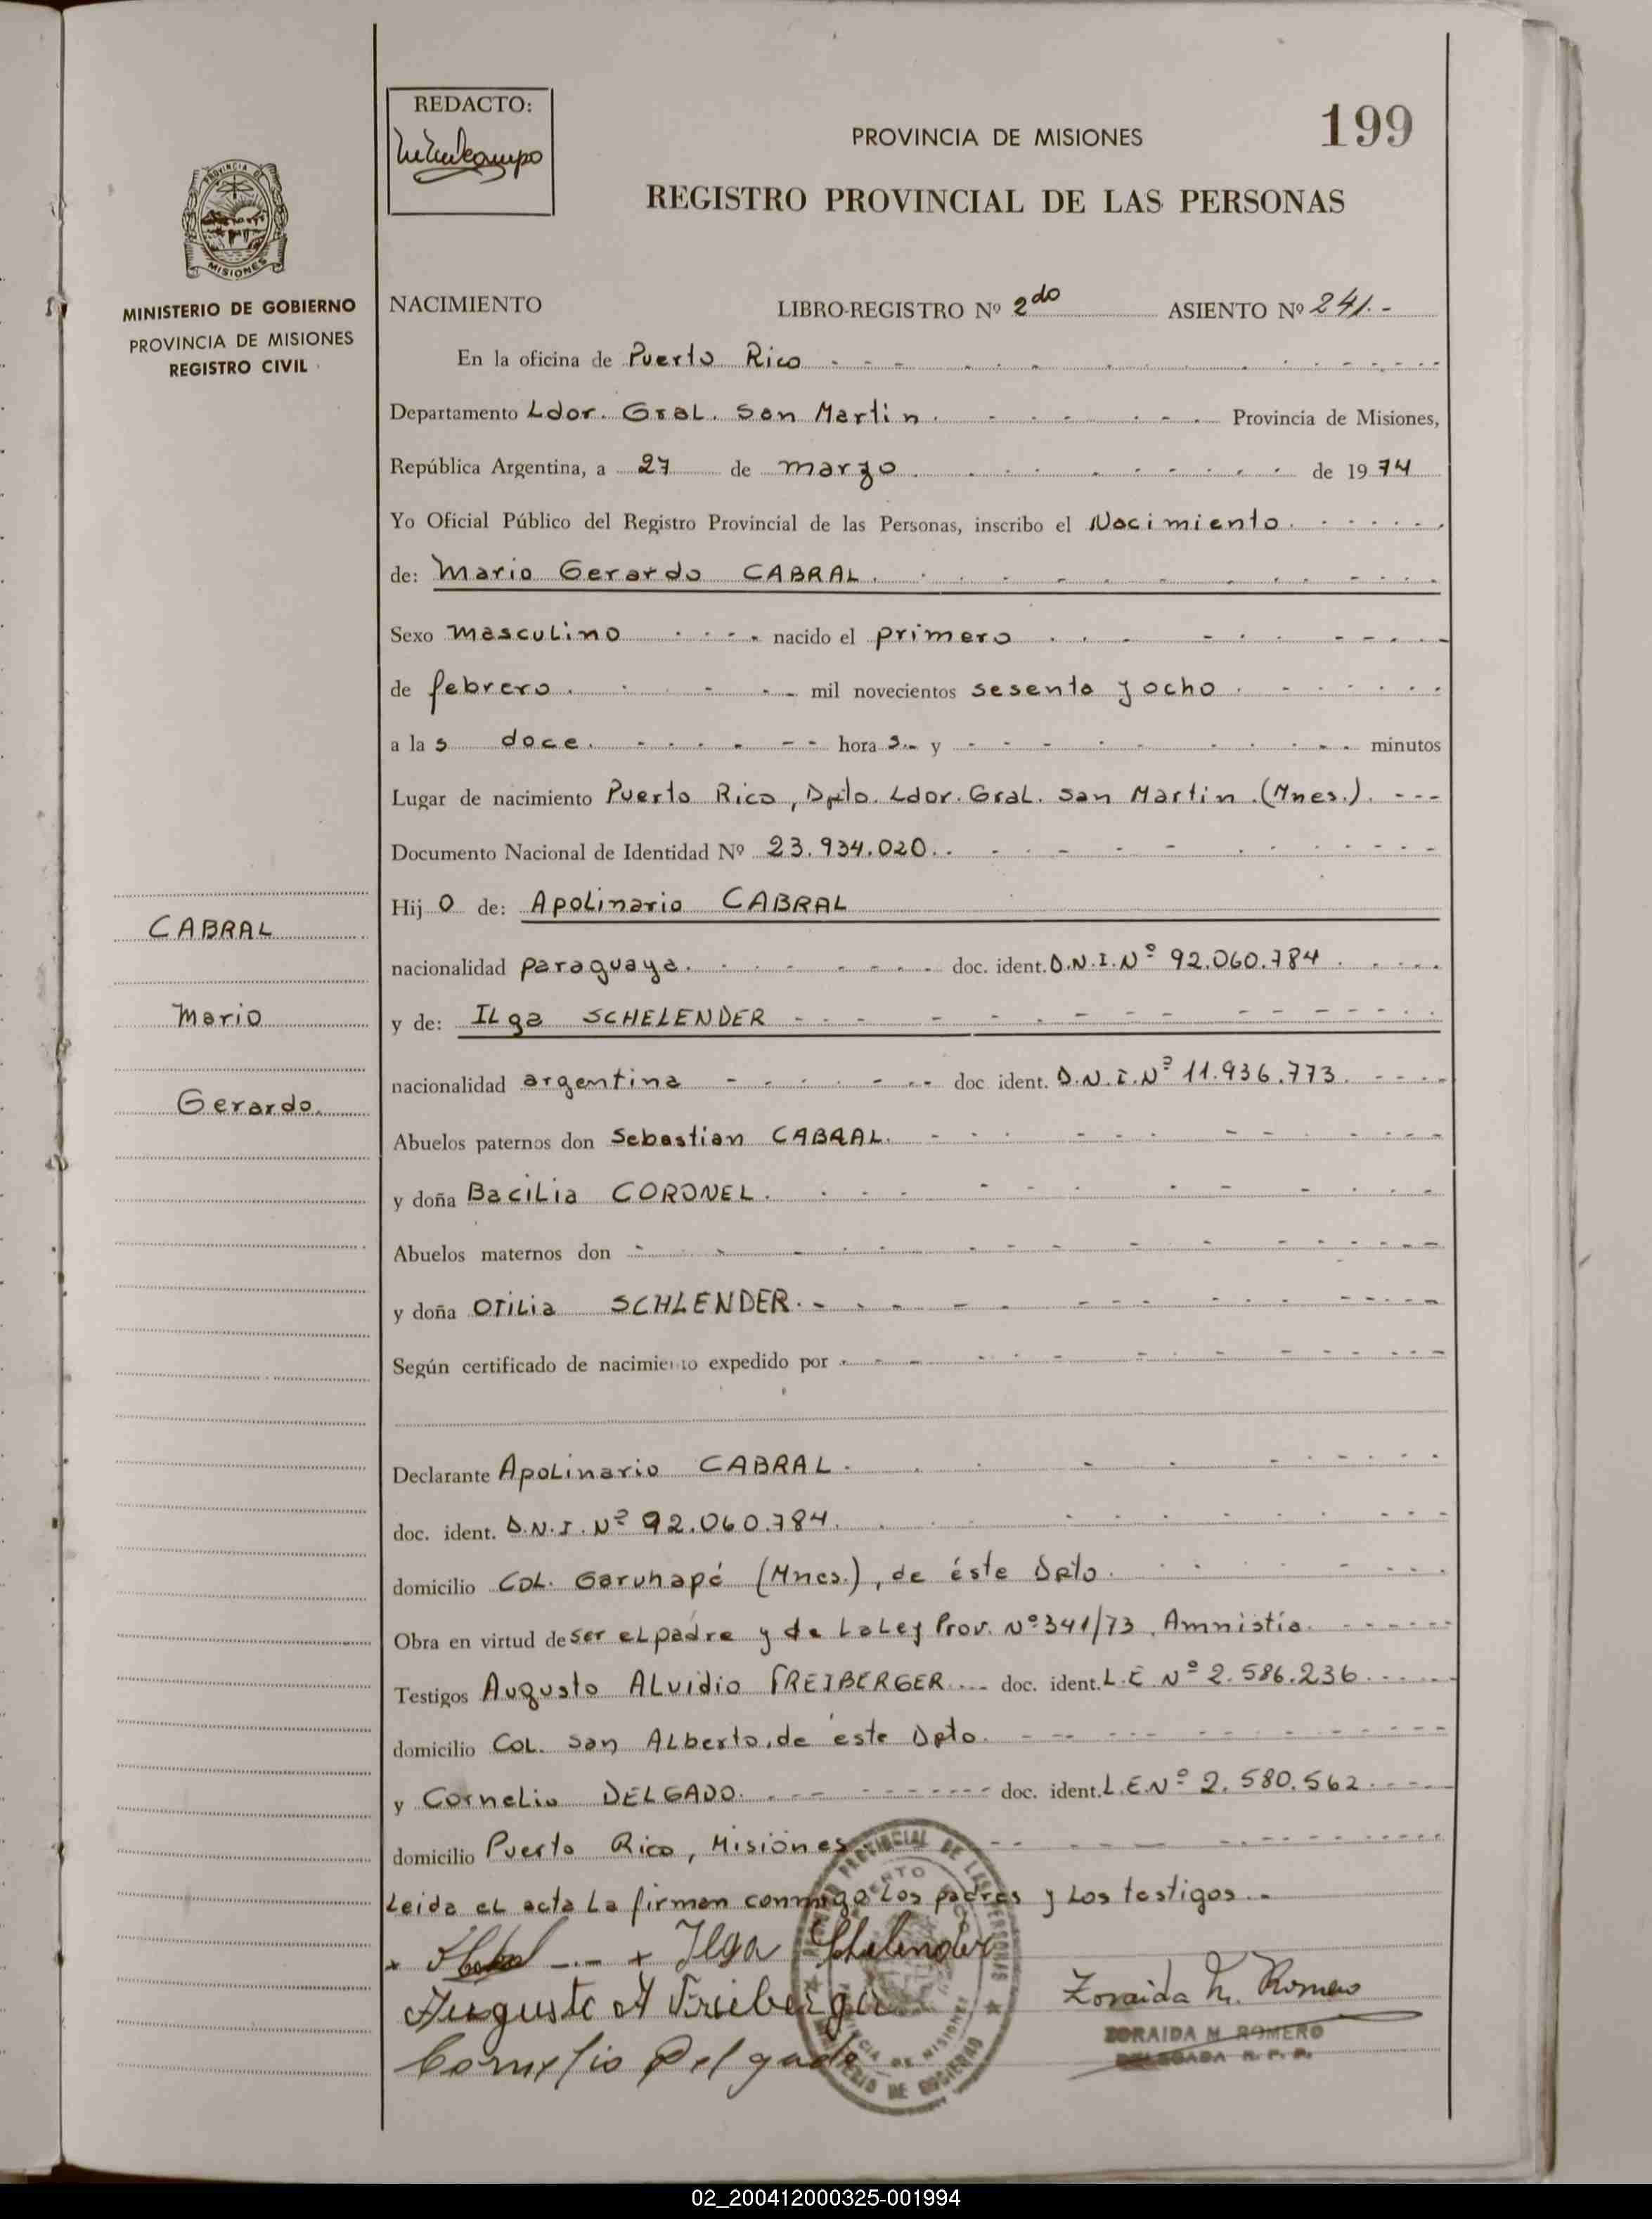 REDACTO:
PROVINCIA DE MISIONES
199
REGISTRO PROVINCIAL DE LAS PERSONAS
PROVINCIA DE
MISIONES
MINISTERIO DE GOBIERNO
PROVINCIA DE MISIONES
REGISTRO CIVIL
NACIMIENTO LIBRO-REGISTRO Nº 2do ASIENTO Nº 241.-
En la oficina de Puerto Rico
Departamento Ldor. Gral. San Martin. Provincia de Misiones,
República Argentina, a 27 de marzo de 1974
Yo Oficial Público del Registro Provincial de las Personas, inscribo el Nacimiento.
de: Mario Gerardo CABRAL.
Sexo masculino nacido el primero
de febrero. mil novecientos sesenta y ocho
a las doce. horas.- y minutos
Lugar de nacimiento Puerto Rico, Dpto. Ldor. Gral. San Martin. (Mnes.). ---
Documento Nacional de Identidad Nº 23.934.020.
Hijo de: Apolinario CABRAL
nacionalidad paraguaya. doc. ident. D.N.I.Nº 92.060.784
y de: ILga SCHELENDER
nacionalidad argentina doc ident. D.N.I.Nº 11.936.773.
Abuelos paternos don Sebastian CABRAL.
y doña BaciLia CORONEL.
Abuelos maternos don
y doña OTiLia SCHLENDER.
Según certificado de nacimiento expedido por
Declarante Apolinario CABRAL.
doc. ident. D.N.I. Nº 92.060.784.
domicilio CoL. Garuhapé (Mnes.), de éste Dpto.
Obra en virtud de ser el padre y de La Ley Prov. Nº 341/73, Amnistia.
Testigos Augusto ALvidio FREIBERGER doc. ident. L.E Nº 2.586.236
domicilio CoL. San ALberto, de este Dpto.
y Cornelio DELGADO. doc. ident. L.E.Nº 2.580.562
domicilio Puerto Rico, Misiones
Leida el acta La firman conmigo Los padres y Los testigos.-
Ilga Schelender
Augusto A Freiberger
Cornelio Delgado
Zoraida M. Romero
ZORAIDA M. ROMERO
DELEGADA R. P. P.
CABRAL
Mario
Gerardo.
02_200412000325-001994